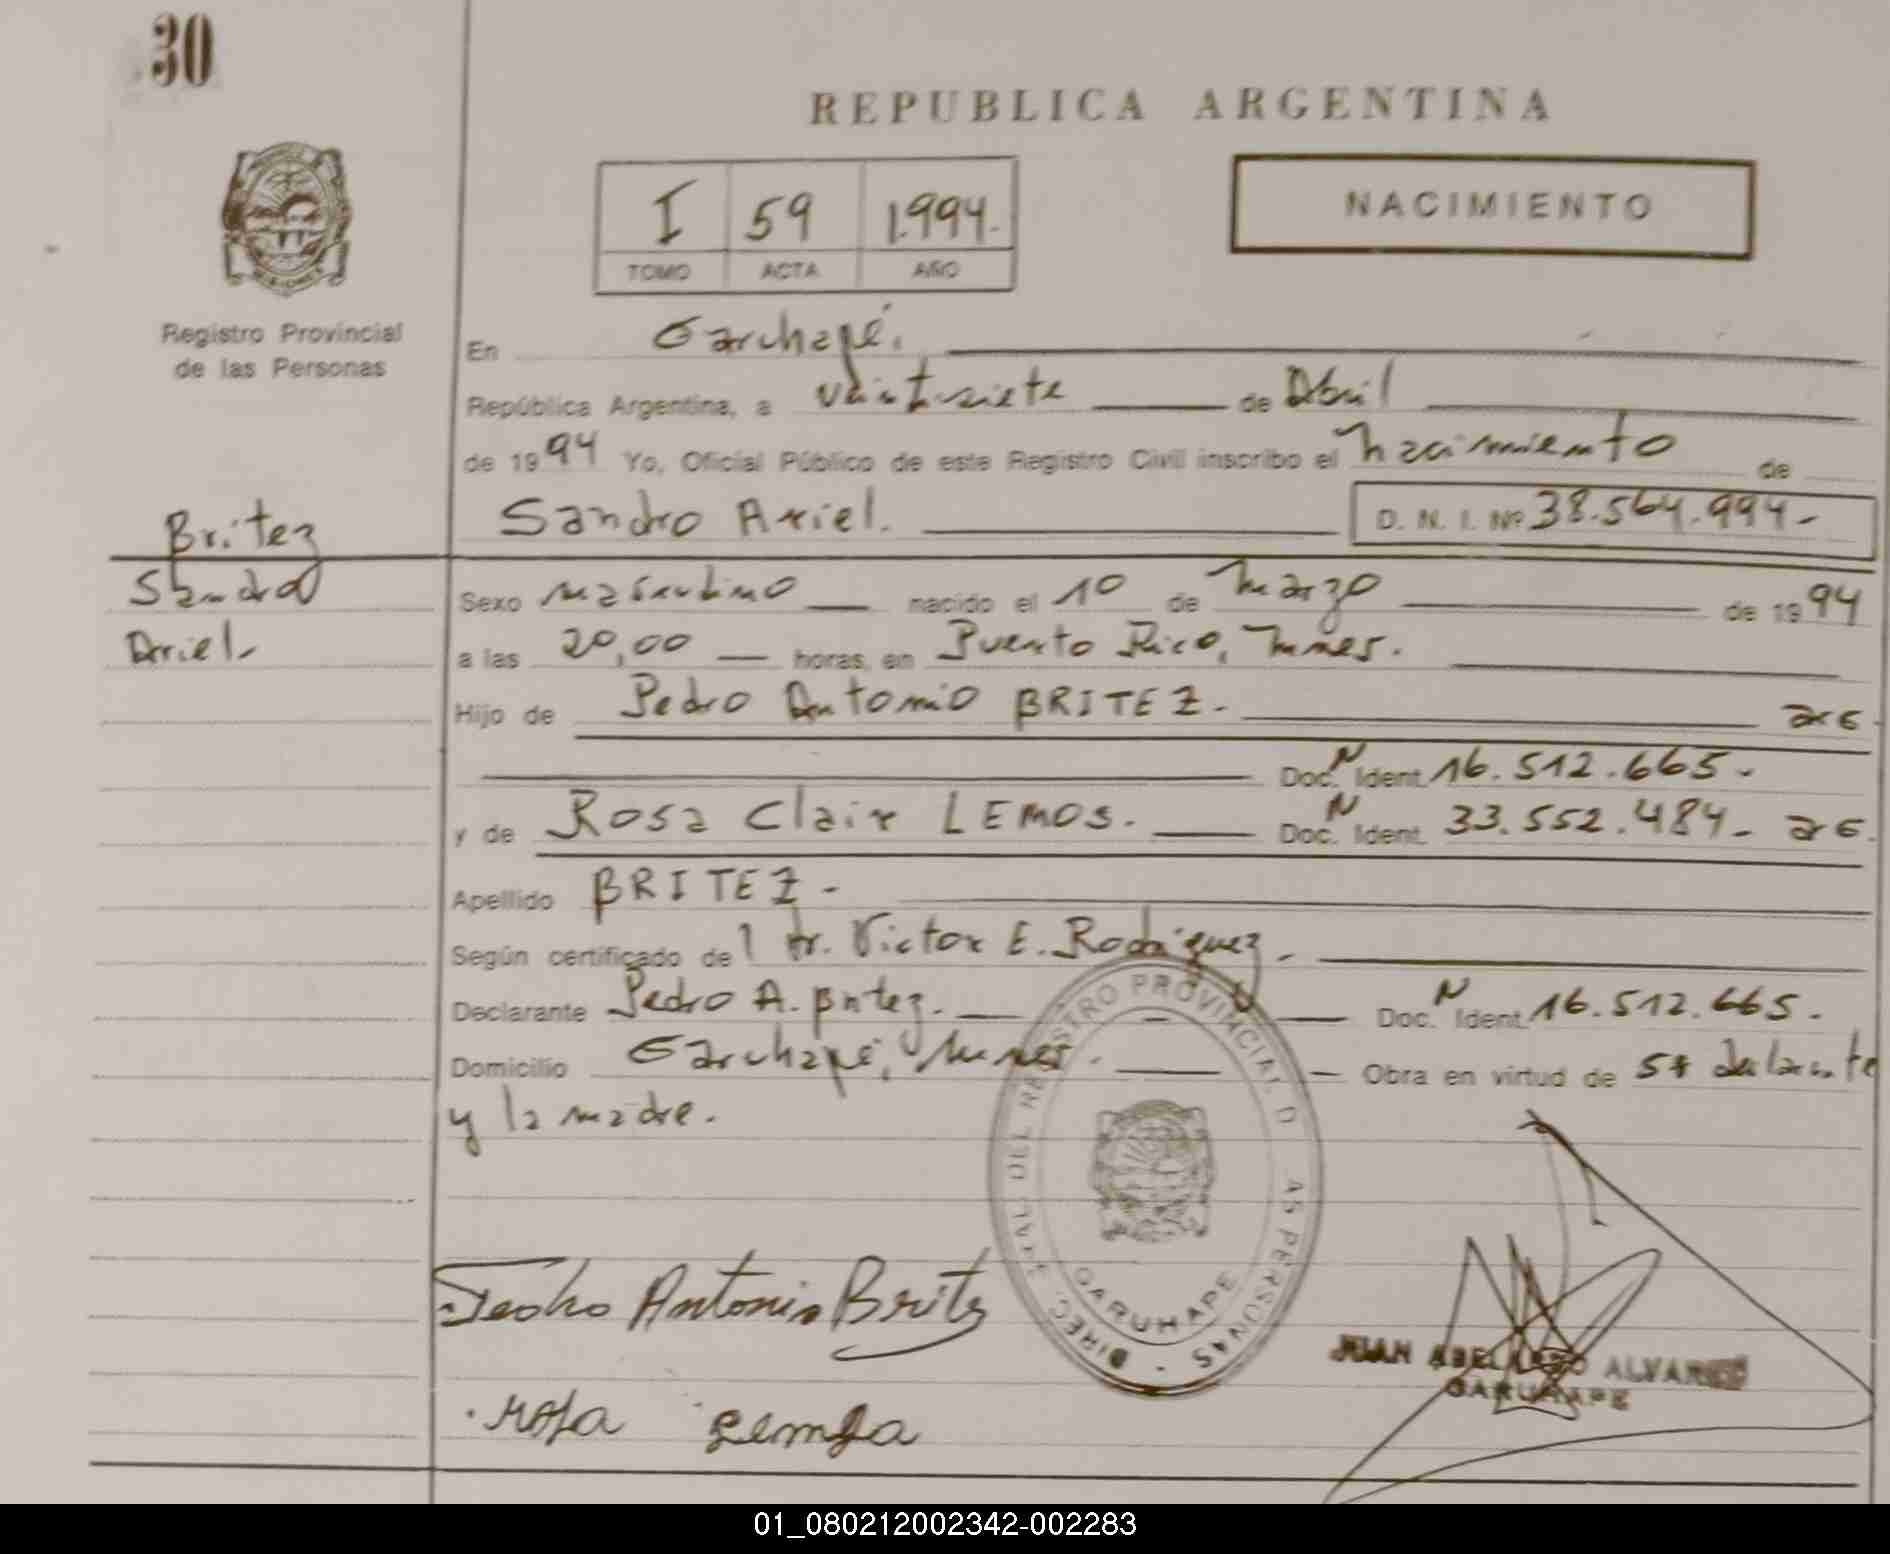 30
REPUBLICA ARGENTINA
I 59 1.994.
TOMO ACTA AÑO
NACIMIENTO
Registro Provincial
de las Personas
En Garuhapé.
República Argentina, a veintisiete de Abril
de 1994 Yo, Oficial Público de este Registro Civil inscribo el nacimiento de
Sandro Ariel. D. N. I. Nº 38.564.994.-
Britez
Sandro
Ariel.-
Sexo masculino nacido el 10 de marzo de 1994
a las 20,00 horas, en Puerto Rico, Mnes.
Hijo de Pedro Antonio BRITEZ.-
Doc. N Ident. 16.512.665.-
y de Rosa Clair LEMOS.- Doc. N Ident. 33.552.484.-
Apellido BRITEZ.-
Según certificado de l Dr. Victor E. Rodriguez.-
Declarante Pedro A. Britez.- Doc. N Ident. 16.512.665.
Domicilio Garuhapé, Mnes.- Obra en virtud de declarante
y la madre.
DIREC. GRAL DEL REGISTRO PROVINCIAL D AS PERSONAS -
GARUHAPE
Pedro Antonio Britez
JUAN ABELARDO ALVAREZ
GARUHAPE
rosa
01_080212002342-002283